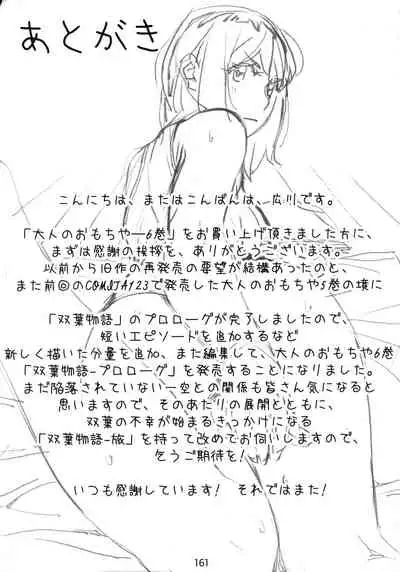 あとがき
こんにちは、またはこんばんは、広川です。
「大人のおもちゃ―6巻」をお買い上げ頂きました方に、
まずは感謝の挨拶を、ありがとうございます。
以前から旧作の再発売の要望が結構あったのと、
また前回のCOMITA123で発売した大人のおもちや5巻の頃に
「双葉物語」のプロローグが完了しましたので、
短いエピソードを追加するなど
新しく描いた分量を追加、また編集して、大人のおもちや6巻
「双葉物語-プロローグ」を発売することになりました。
まだ陥落されていない一空との関係も皆さん気になると
思いますので、そのあたりの展開とともに、
双葉の不幸が始まるきっかけになる
「双葉物語-旅」を持って改めてお伺いしますので、
乞うご期待を!
いつも感謝しています! それではまた!
161